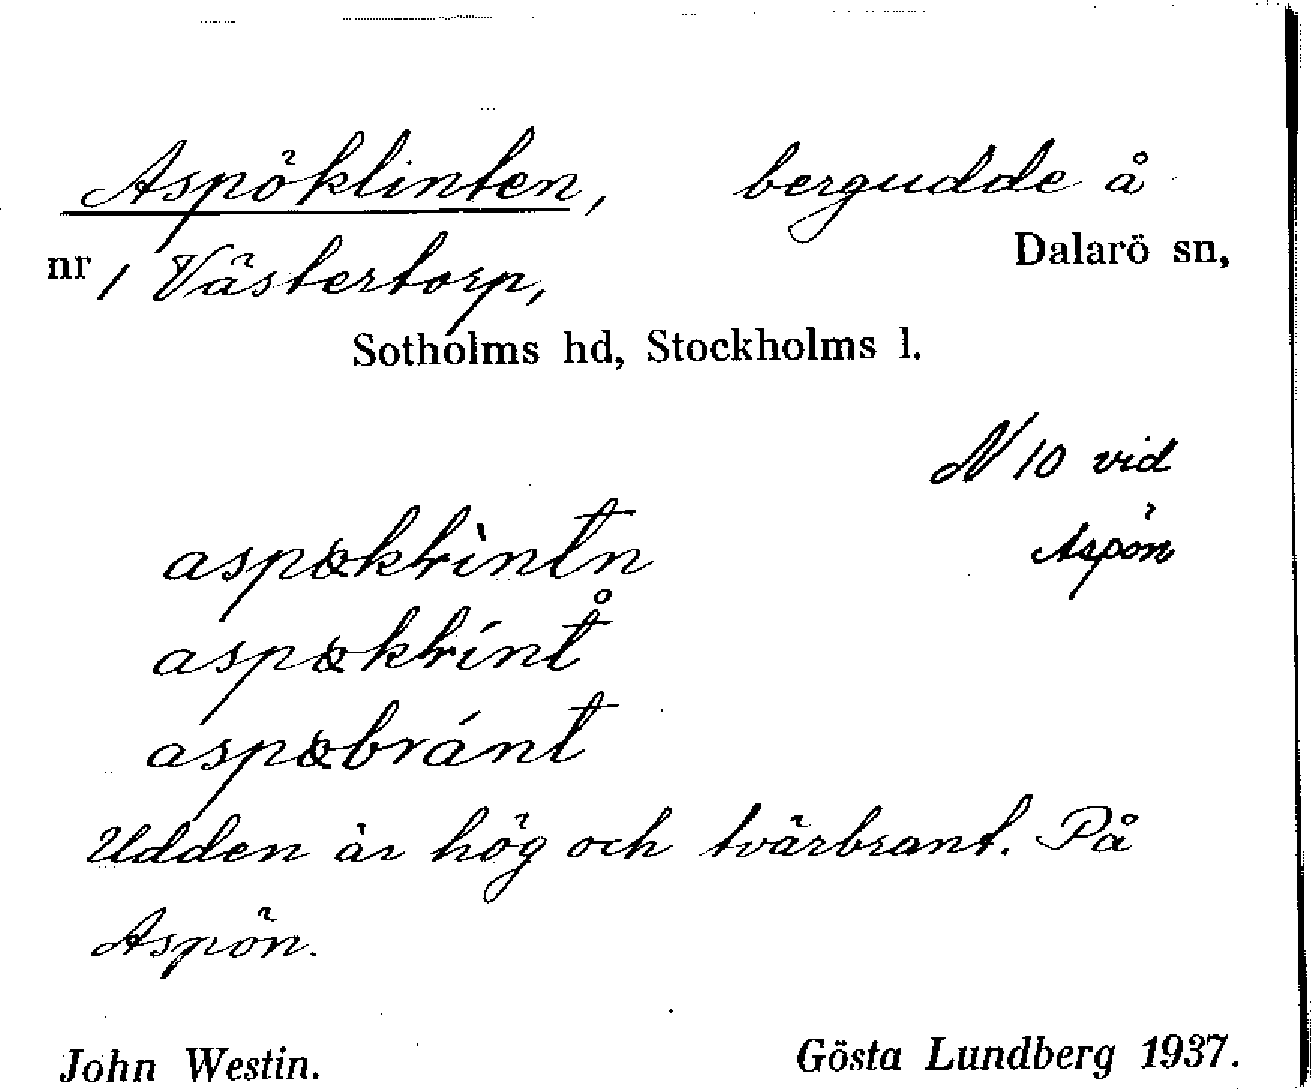 Aspöklinten, bergudde å
nr 1 Västertorp, Dalarö sn,
Sotholms hd, Stockholms l.
N 10 vid
Aspön
Udden är hög och tvärbrant. På
Aspön.
John Westin. Gösta Lundberg 1937.